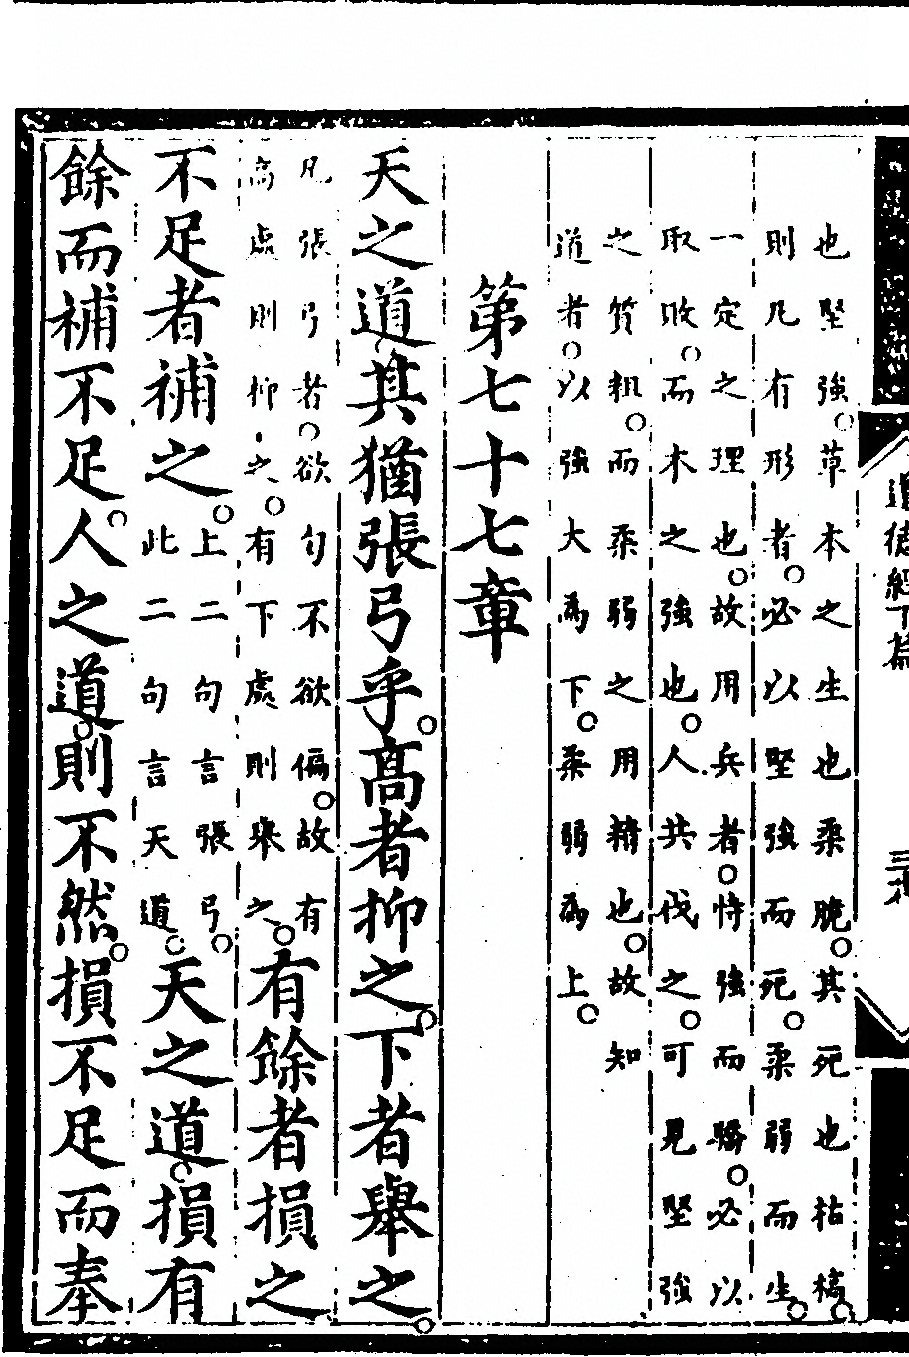 道德經下篇
也堅強。草本之生也柔脆。其死也枯槁。
則凡有形者。必以堅強而死。柔弱而生。
一定之理也。故用兵者。恃強而驕。必以
取敗。而木之強也。人共伐之。可見堅強
之質粗。而柔弱之用精也。故知
道者。以強大為下。柔弱為上。
第七十七章
天之道其猶張弓乎。高者抑之。下者舉之。
凡張弓者。欲勻不欲偏。故有
高處則抑之。有下處則舉之。
有餘者損之
不足者補之。
上二句言張弓。
此二句言天道。
天之道。損有
餘而補不足。人之道。則不然。損不足而奉